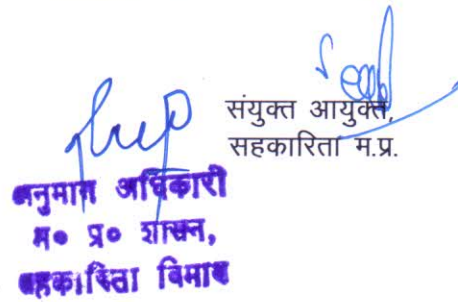 संयुक्त आयुक्त,
सहकारिता म.प्र.
अनुभाग अधिकारी
म० प्र० शासन,
सहकारिता विभाग